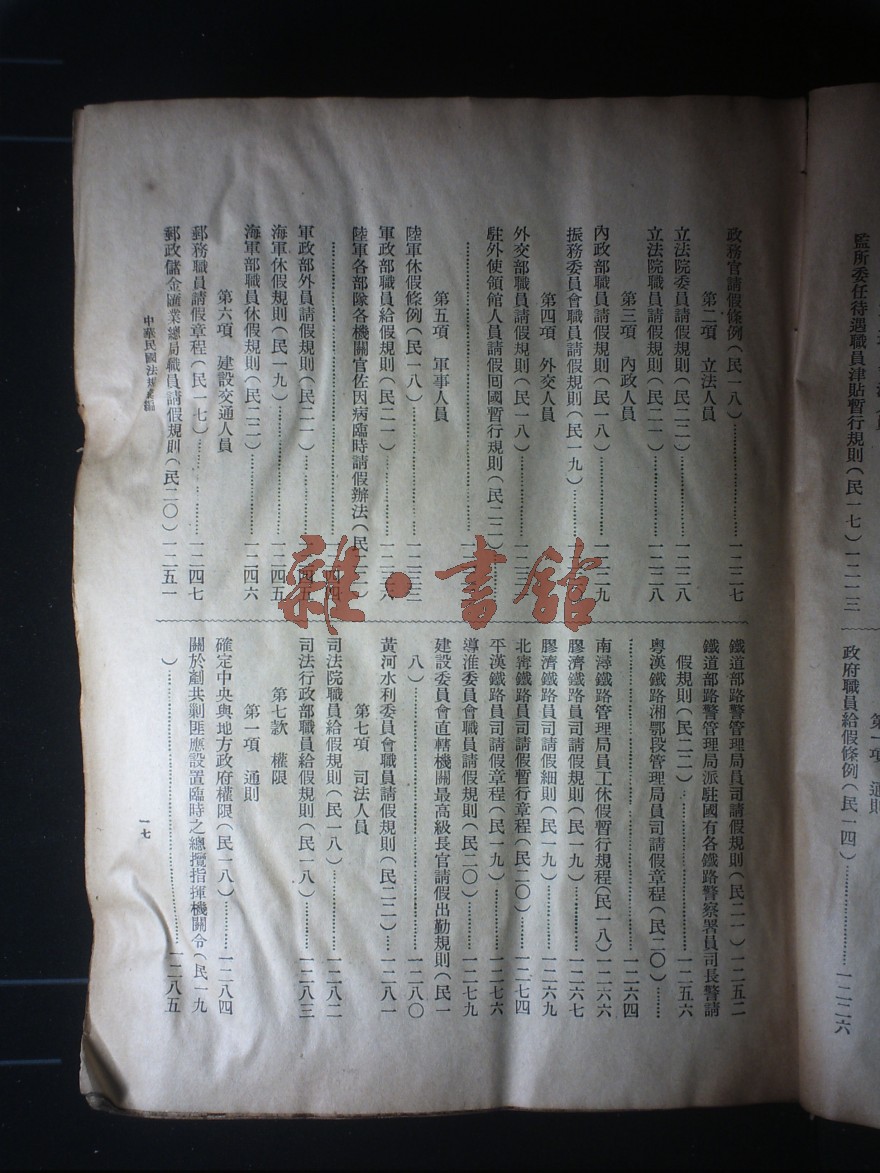 政務官請假條例(民一八)……一二二七
第二項 立法人員
立法院委員請假規則(民二二)……一二二八
立法院職員請假規則(民二一)……一二二八
第三項 內政人員
內政部職員請假規則(民一八)……一二二九
振務委員會職員請假規則(民一九)……
第四項 外交人員
外交部職員請假規則(民一八)……一二三
駐外使領館人員請假囘國暫行規則(民二二)
第五項 軍事人員
陸軍休假條例(民一八)……一二三三
軍政部職員給假規則(民二一)……一二三六
陸軍各部隊各機關官佐因病臨時請假辦法(民二二)
……一二四四
軍政部外員請假規則(民二一)……一二四五
海軍休假規則(民一九)……一二四五
海軍部職員休假規則(民二二)……一二四六
第六項 建設交通人員
郵務職員請假章程(民一七)……一二四七
郵政儲金匯業總局職員請假規則(民二〇)一二五一
鐵道部路警管理局員司請假規則(民二一)一二五二
鐵道部路警管理局派駐國有各鐵路警察署員司長警請
假規則(民二二)……一二五六
粵漢鐵路湘鄂段管理局員司請假章程(民二〇)……
……一二六四
南潯鐵路管理局員工休假暫行規程(民一八)一二六六
膠濟鐵路員司請假規則(民一九)……一二六七
膠濟鐵路員司請假細則(民一九)……一二六九
北甯鐵路員司請假暫行章程(民二〇)一二七四
平漢鐵路員司請假章程(民一九)……一二七六
導淮委員會職員請假規則(民二〇)……一二七九
建設委員會直轄機關最高級長官請假出勤規則(民一
八)……一二八〇
黃河水利委員會職員請假規則(民二二)一二八一
第七項 司法人員
司法院職員給假規則(民一八)……一二八二
司法行政部職員給假規則(民一八)……一二八三
第七款 權限
第一項 通則
確定中央與地方政府權限(民一八)……一二八四
關於剷共剿匪應設置臨時之總攬指揮機關令(民一九
)……一二八五
中華民國法規彙編
一七
監所委任待遇職員津貼暫行規則(民一七)一二一三
第一項 通則
政府職員給假條例(民一四)……一二二六
雜·書館